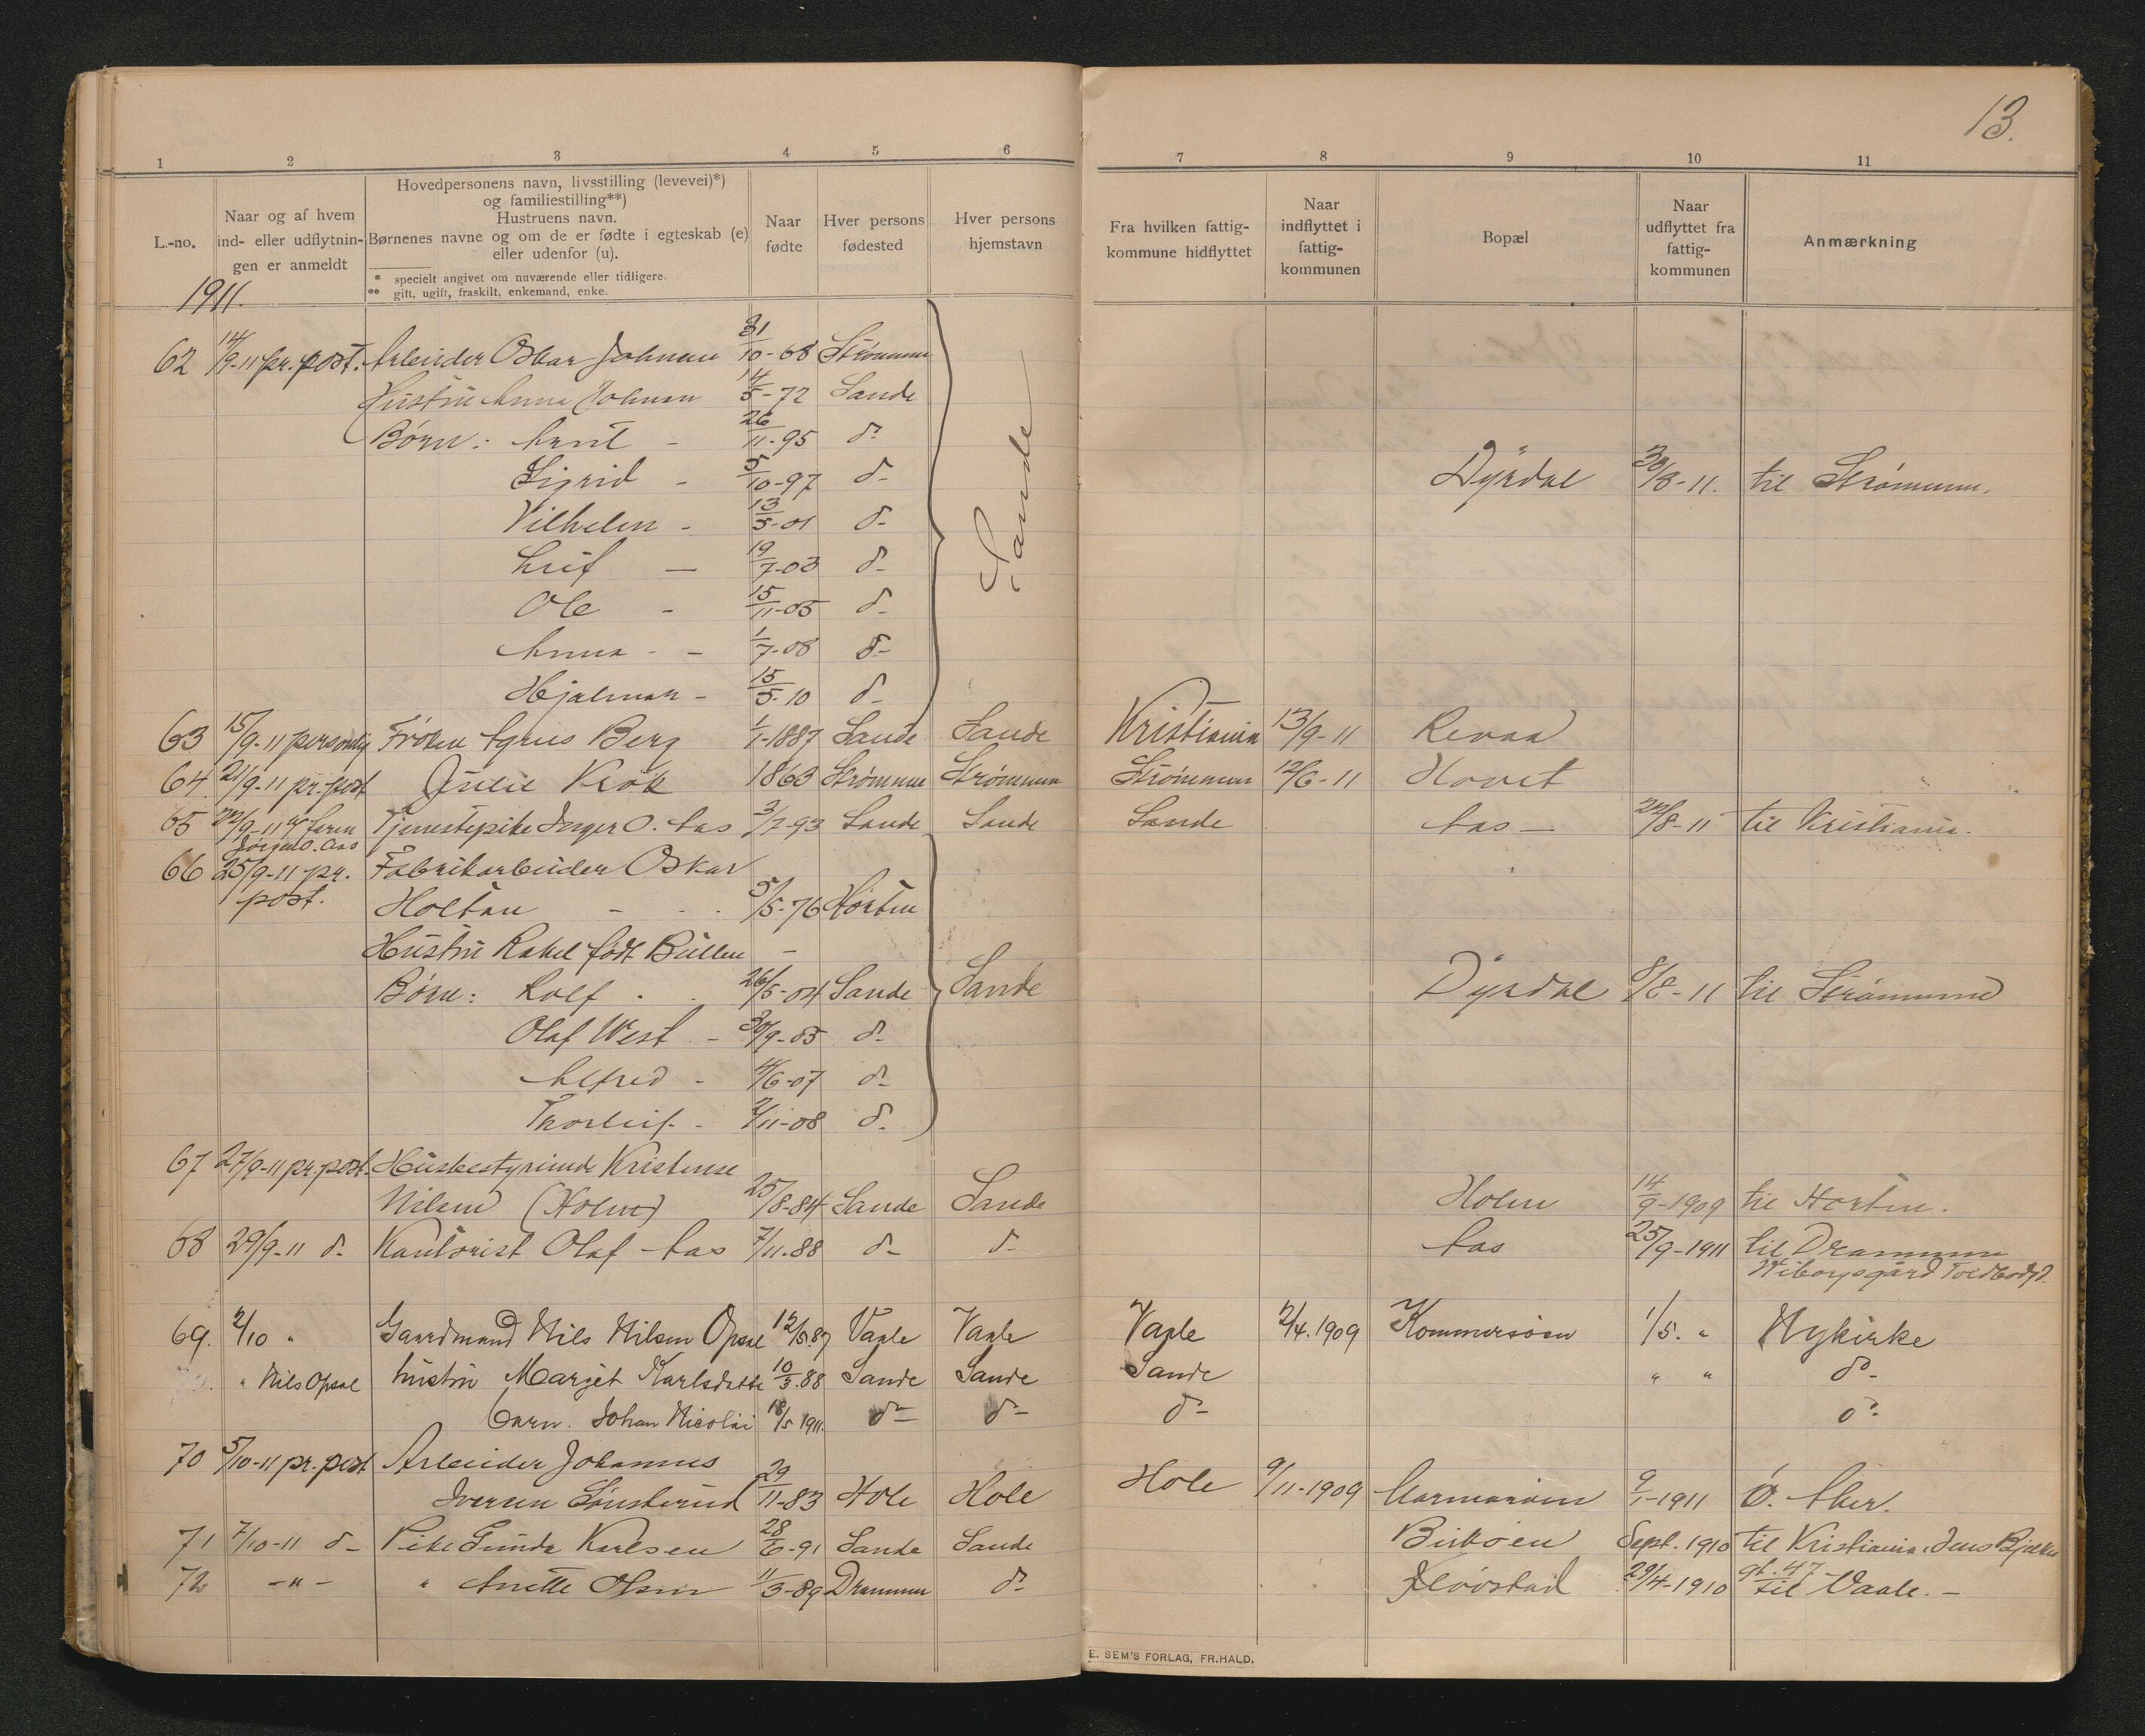 13.
1 2 3 4 5 6 7 8 9 10 11
L.-no.
Naar og af hvem
ind- eller udflytnin-
gen er anmeldt
Hovedpersonens navn, livsstilling (levevei)*)
og familiestilling**)
Hustruens navn.
Børnenes navne og om de er fødte i egteskab (e)
eller udenfor (u).
* specielt angivet om nuværende eller tidligere.
** gift, ugift, fraskilt, enkemand, enke.
Naar
fødte
Hver persons
fødested
Hver persons
hjemstavn
Fra hvilken fattig-
kommune hidflyttet
Naar
indflyttet i
fattig-
kommunen
Bopæl
Naar
udflyttet fra
fattig-
kommunen
Anmærkning
1911.
62 14/9-11 pr. post. Arbeider Oskar Johnsen 31/10-68 Strømmen
Hustru Anna Johnsen 14/5-72 Sande
Børn: Arnt - 26/11-95 do- Sande
Sigrid - 5/10-97 do- Dyrdal 30/8-11. til Strømmen.
Vilhelm - 13/5-01 do-
Leif - 19/7-03 do-
Ole - 15/11-05 do-
Anna - - 1/7-08 do-
Hjalmar - 15/5-10 do-
63 15/9-11 personlig Frøken Agnes Berg 1/1-1887 Sande Sande Kristiania 13/9-11 Revaa
64 21/9-11 pr. post Julie Krok 1863 Strømmen Strømmen Strømmen 12/6-11 Hovet
65 22/9-11 af faren Tjenestepike Inger O. Aas 3/7-93 Sande Sande Sande Aas - 24/8-11 til Kristiania.
Jørgen O. Aas
66 25/9-11 pr. Fabrikarbeider Oskar
post. Holtan - 5/5-76 Horten
Hustru Rakel født Bullen -
Børn: Rolf 26/5-04 Sande Sande Dyrdal 8/8-11 til Strømmen
Olaf West - 30/9-05 do-
Alfred - 4/6-07 do-
Thorleif - 2/11-08 do-
67 27/9-11 pr. post. Husbestyrinde Kristense
Nilsen (Holm) 25/8-84 Sande Sande Holm 14/9-1909 til Horten.
68 29/9-11 do- Kontorist Olaf Aas 7/11-88 do- do- Aas 25/9-1911 til Drammen
Wiborgsgård Toldbodgd.
69. 2/10 " Gaardmand Nils Nilsen Opsal 12/5.87 Vaale Vaale Vaale 2/4.1909 Kommersøen 1/5. " Nykirke
" Nils Opsal hustru Marget Karlsdatter 10/3.88 Sande Sande Sande " " do-
barn. Johan Nicolai 18/5 1911. do- do- do- do-
70 5/10-11 pr. post Arbeider Johannes
Iversen Sønsterud 29/11-83 Hole Hole Hole 9/11-1909 9/1-1911 Ø. Aker.
71 7/10-11 do- Pike Gunda Karlsen 28/6-91 Sande Sande Sept. 1910 til Kristiania. Jens Bjelkes
gt. 47
72 -"- " Anette Olsen 11/3-89 Drammen do- Kløvstad 29/4-1910 til Vaale. -
E. SEM'S FORLAG, FR.HALD.